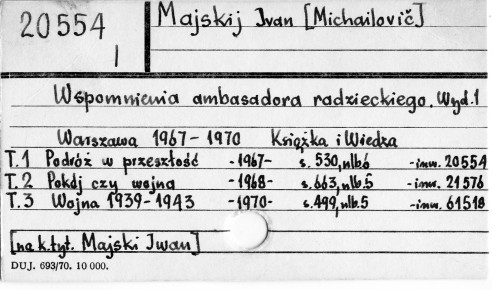 20554
I
Majskij Ivan [Michaiłovič]
Wspomnienia ambasadora radzieckiego. Wyd.1
Warszawa 1967-1970 Książka i Wiedza
T.1 Podróż w przeszłość -1967- s.530,nlb.6 -inw. 20554
T.2 Pokój czy wojna -1968- s.663,nlb.5 -inw. 21576
T.3 Wojna 1939-1943 -1970- s.499,nlb.5 -inw. 61518
[na k.tyt. Majski Iwan]
DUJ. 693/70. 10 000.